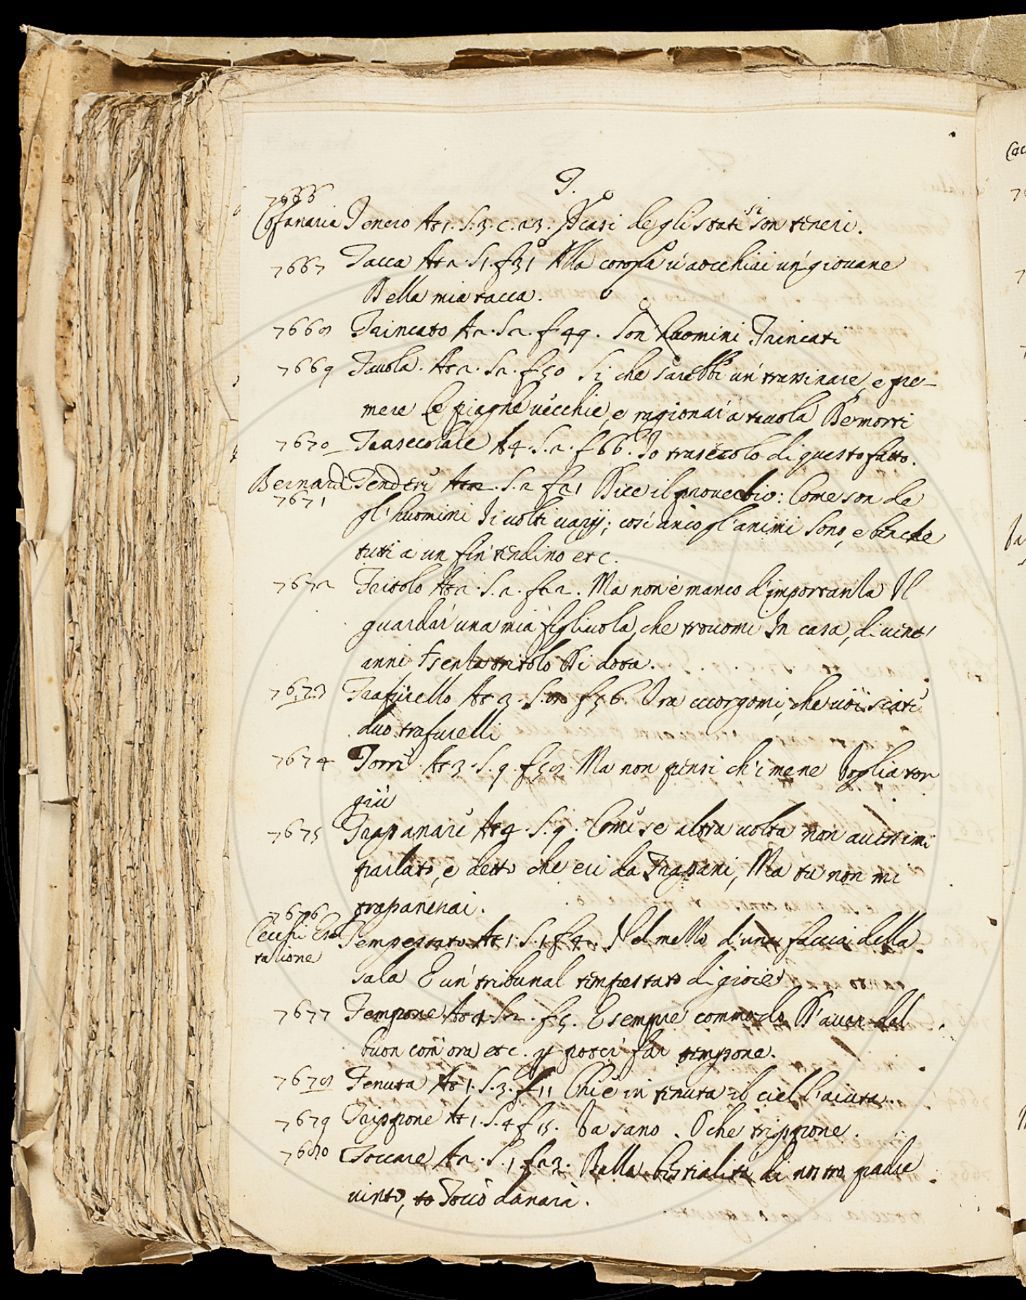 T.
7666
Cofanaria Tenero At 1. S. 3. c. 23. Dicasi degli stati si son teneri.
7667 Tacca At 2. S. 1. f 31 Alla v'adocchiai un giovane
Della mia tacca.
7668 Trincato At 2. S. 2. f 49. Son huomini Trincati
7669 Tavola. At 2. S. 2. f 50 Si che sarebbe un trassinare e pre-
mere le piaghe vecchie, e ragionar a tavola De morti
7670 Trasecolare At 4. S. 2. f 66. Io trasecolo di questo fatto.
Bernardi Tendere At 2. S. 2 f 21 Dice il proverbio: Come son de
7671
gl'huomini I volti varij; così anco gl'animi sono, e benche
tutti a un fin tendino etc.
7672 Tritolo At 2. S. 2. f 62. Ma non è manco d'importanza Il
guardar una mia figliuola, che trovomi In casa, di vent'
anni senza tritolo Di dota.
7673 Trafurello At 3. f 56. Ora accorgomi, che voi siate
duo trafurelli
7674 Torre At 3. S. 9. f 58. Ma non pensi ch'i me ne voglia tor
giù
7675 Trapanare At 4. S. 9. Come se altra volta non avessimi
parlato, e detto che eri da Trapani, Ma tu non mi
trapanerai.
7676
Cecchi Esal
tatione Tempestato At 1. S. 1. f 4. Nel mezzo d'una faccia della
sala E un tribunal tempestato di gioie
7677 Tempone At 1. S. 2. f 5. E sempre commodo D'aver del
buon com'ora etc. et poter far tempone.
7678 Tenuta At 1. S. 3. f 11 Chi è in tenuta il ciel l'aiuta.
7679 Trippone At 1. S. 4 f 15. Va sano. O che trippone.
7680 Toccare At 2. S. 1. f 23. Dalla bestialità di nostro padre
vinto, to Toccò danari.